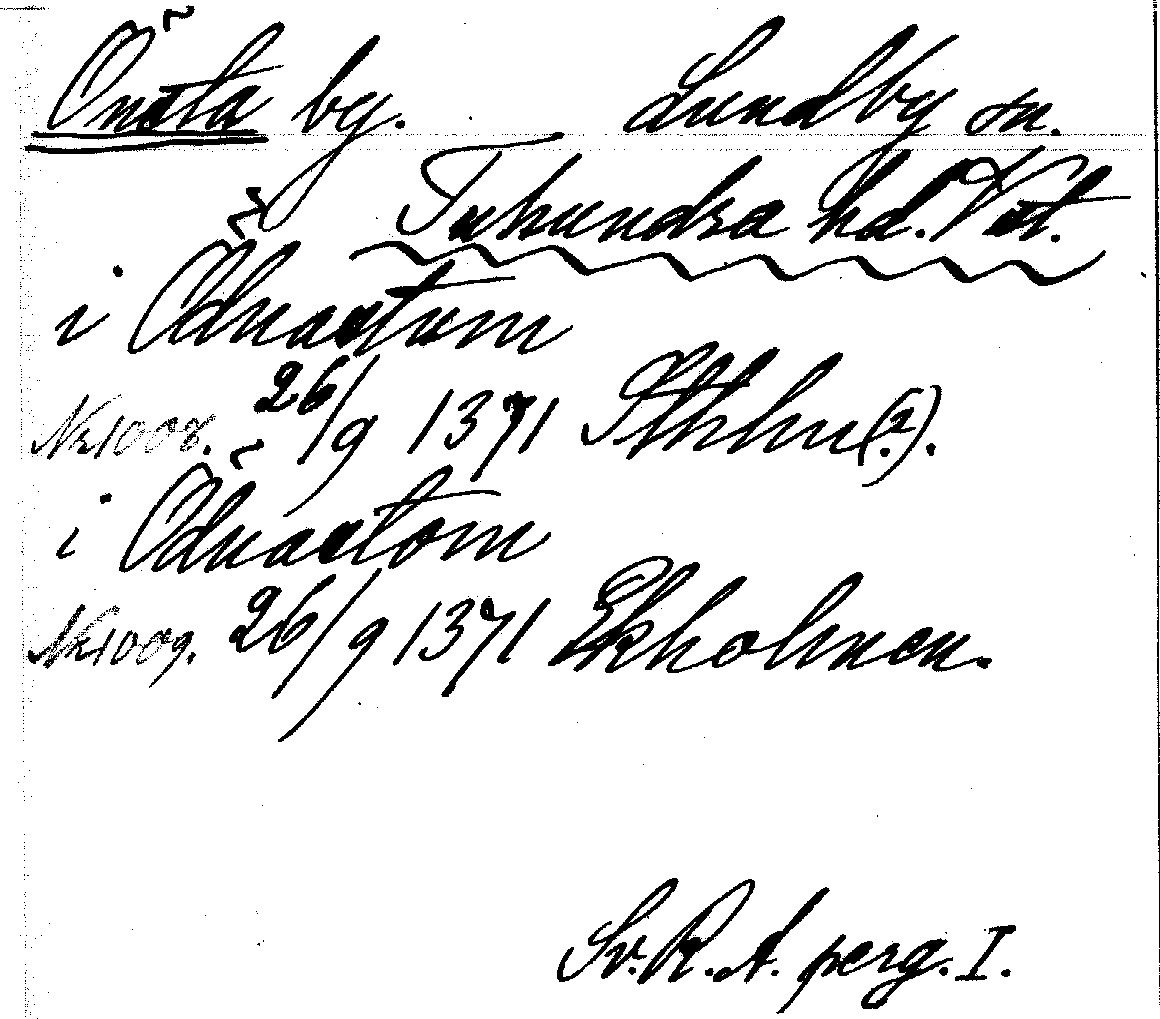 Önsta by. Lundby sn.
Tuhundra hd. Vstm.
i Ödnastum
Nr 1008. 26/9 1371 Sthlm (?).
i Ödnastom
Nr 1009. 26/9 1371 Ekholmen.
Sv. R. A. perg. I.